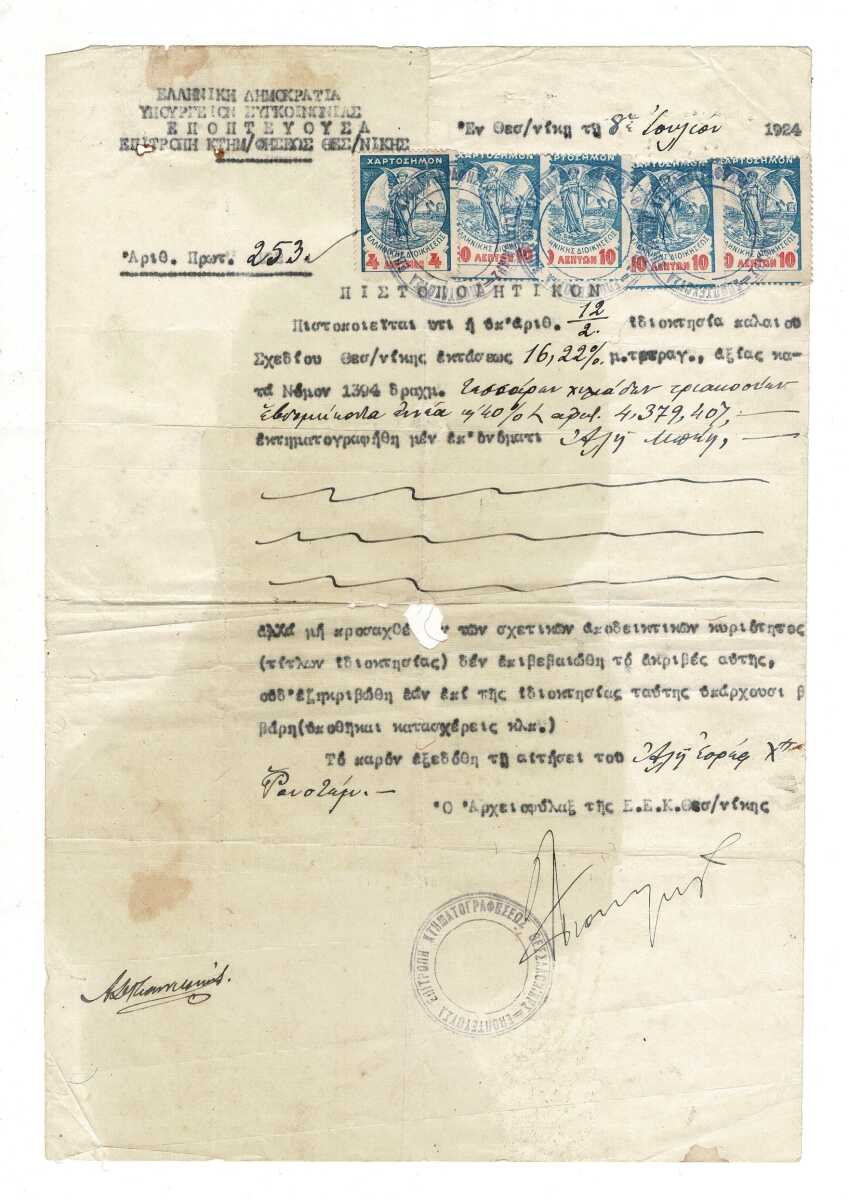 ΕΛΛΗΝΙΚΗ ΔΗΜΟΚΡΑΤΙΑ
ΥΠΟΥΡΓΕΙΟΝ ΣΥΓΚΟΙΝΩΝΙΑΣ
ΕΠΟΠΤΕΥΟΥΣΑ
ΕΠΙΤΡΟΠΗ ΚΤΗΜ/ΦΗΣΕΩΣ ΘΕΣ/ΝΙΚΗΣ
Ἐν Θεσ/νίκῃ τῇ 8ῃ Ἰουλίου 1924
ΧΑΡΤΟΣΗΜΟΝ ΧΑΡΤΟΣΗΜΟΝ ΧΑΡΤΟΣΗΜΟΝ ΧΑΡΤΟΣΗΜΟΝ ΧΑΡΤΟΣΗΜΟΝ
ΕΛΛΗΝΙΚΗΣ ΔΙΟΙΚΗΣΕΩΣ
4 4 10 ΛΕΠΤΩΝ 10 10 ΛΕΠΤΩΝ 10 10 ΛΕΠΤΩΝ 10 10 ΛΕΠΤΩΝ 10
Ἀριθ. Πρωτ. 253
ΠΙΣΤΟΠΟΙΗΤΙΚΟΝ
Πιστοποιεῖται υτι ἡ ὑπ'ἀριθ. 12/2. ἰδιοκτησία παλαιοῦ
Σχεδίου Θεσ/νίκης ἐκτάσεως 16,22% μ.τετραγ., ἀξίας κα-
τά Νόμον 1394 δραχμ. τεσσάρων χιλιάδων τριακοσίων
ἑβδομήκοντα ἐννέα 40% 4,379,40%,—
ἐκτηματογραφήθη μέν ἐπ'ὀνόματι Ἀλῆ Μπέη,—
ἀλλά μή προσαχθέ ν τῶν σχετικῶν ἀποδεικτικῶν κυριότητος
(τίτλων ἰδιοκτησίας) δέν ἐπιβεβαιώθη τό ἀκριβές αὐτῆς,
οὐδ'ἐξηκριβώθη ἐάν ἐπί τῆς ἰδιοκτησίας ταύτης ὑπάρχουσι β
βάρη(ὑποθῆκαι κατασχέρεις κλπ.)
Τό παρόν ἐξεδόθη τῇ αἰτήσει τοῦ Ἀλῆ Ἐσρέφ Χ
Ρουστέμ.—
Ὁ Ἀρχειοφύλαξ τῆς Ε.Ε.Κ.Θεσ/νίκης
ΕΠΟΠΤΕΥΟΥΣΑ ΕΠΙΤΡΟΠΗ ΚΤΗΜΑΤΟΓΡΑΦΗΣΕΩΣ ΘΕΣΣΑΛΟΝΙΚΗΣ